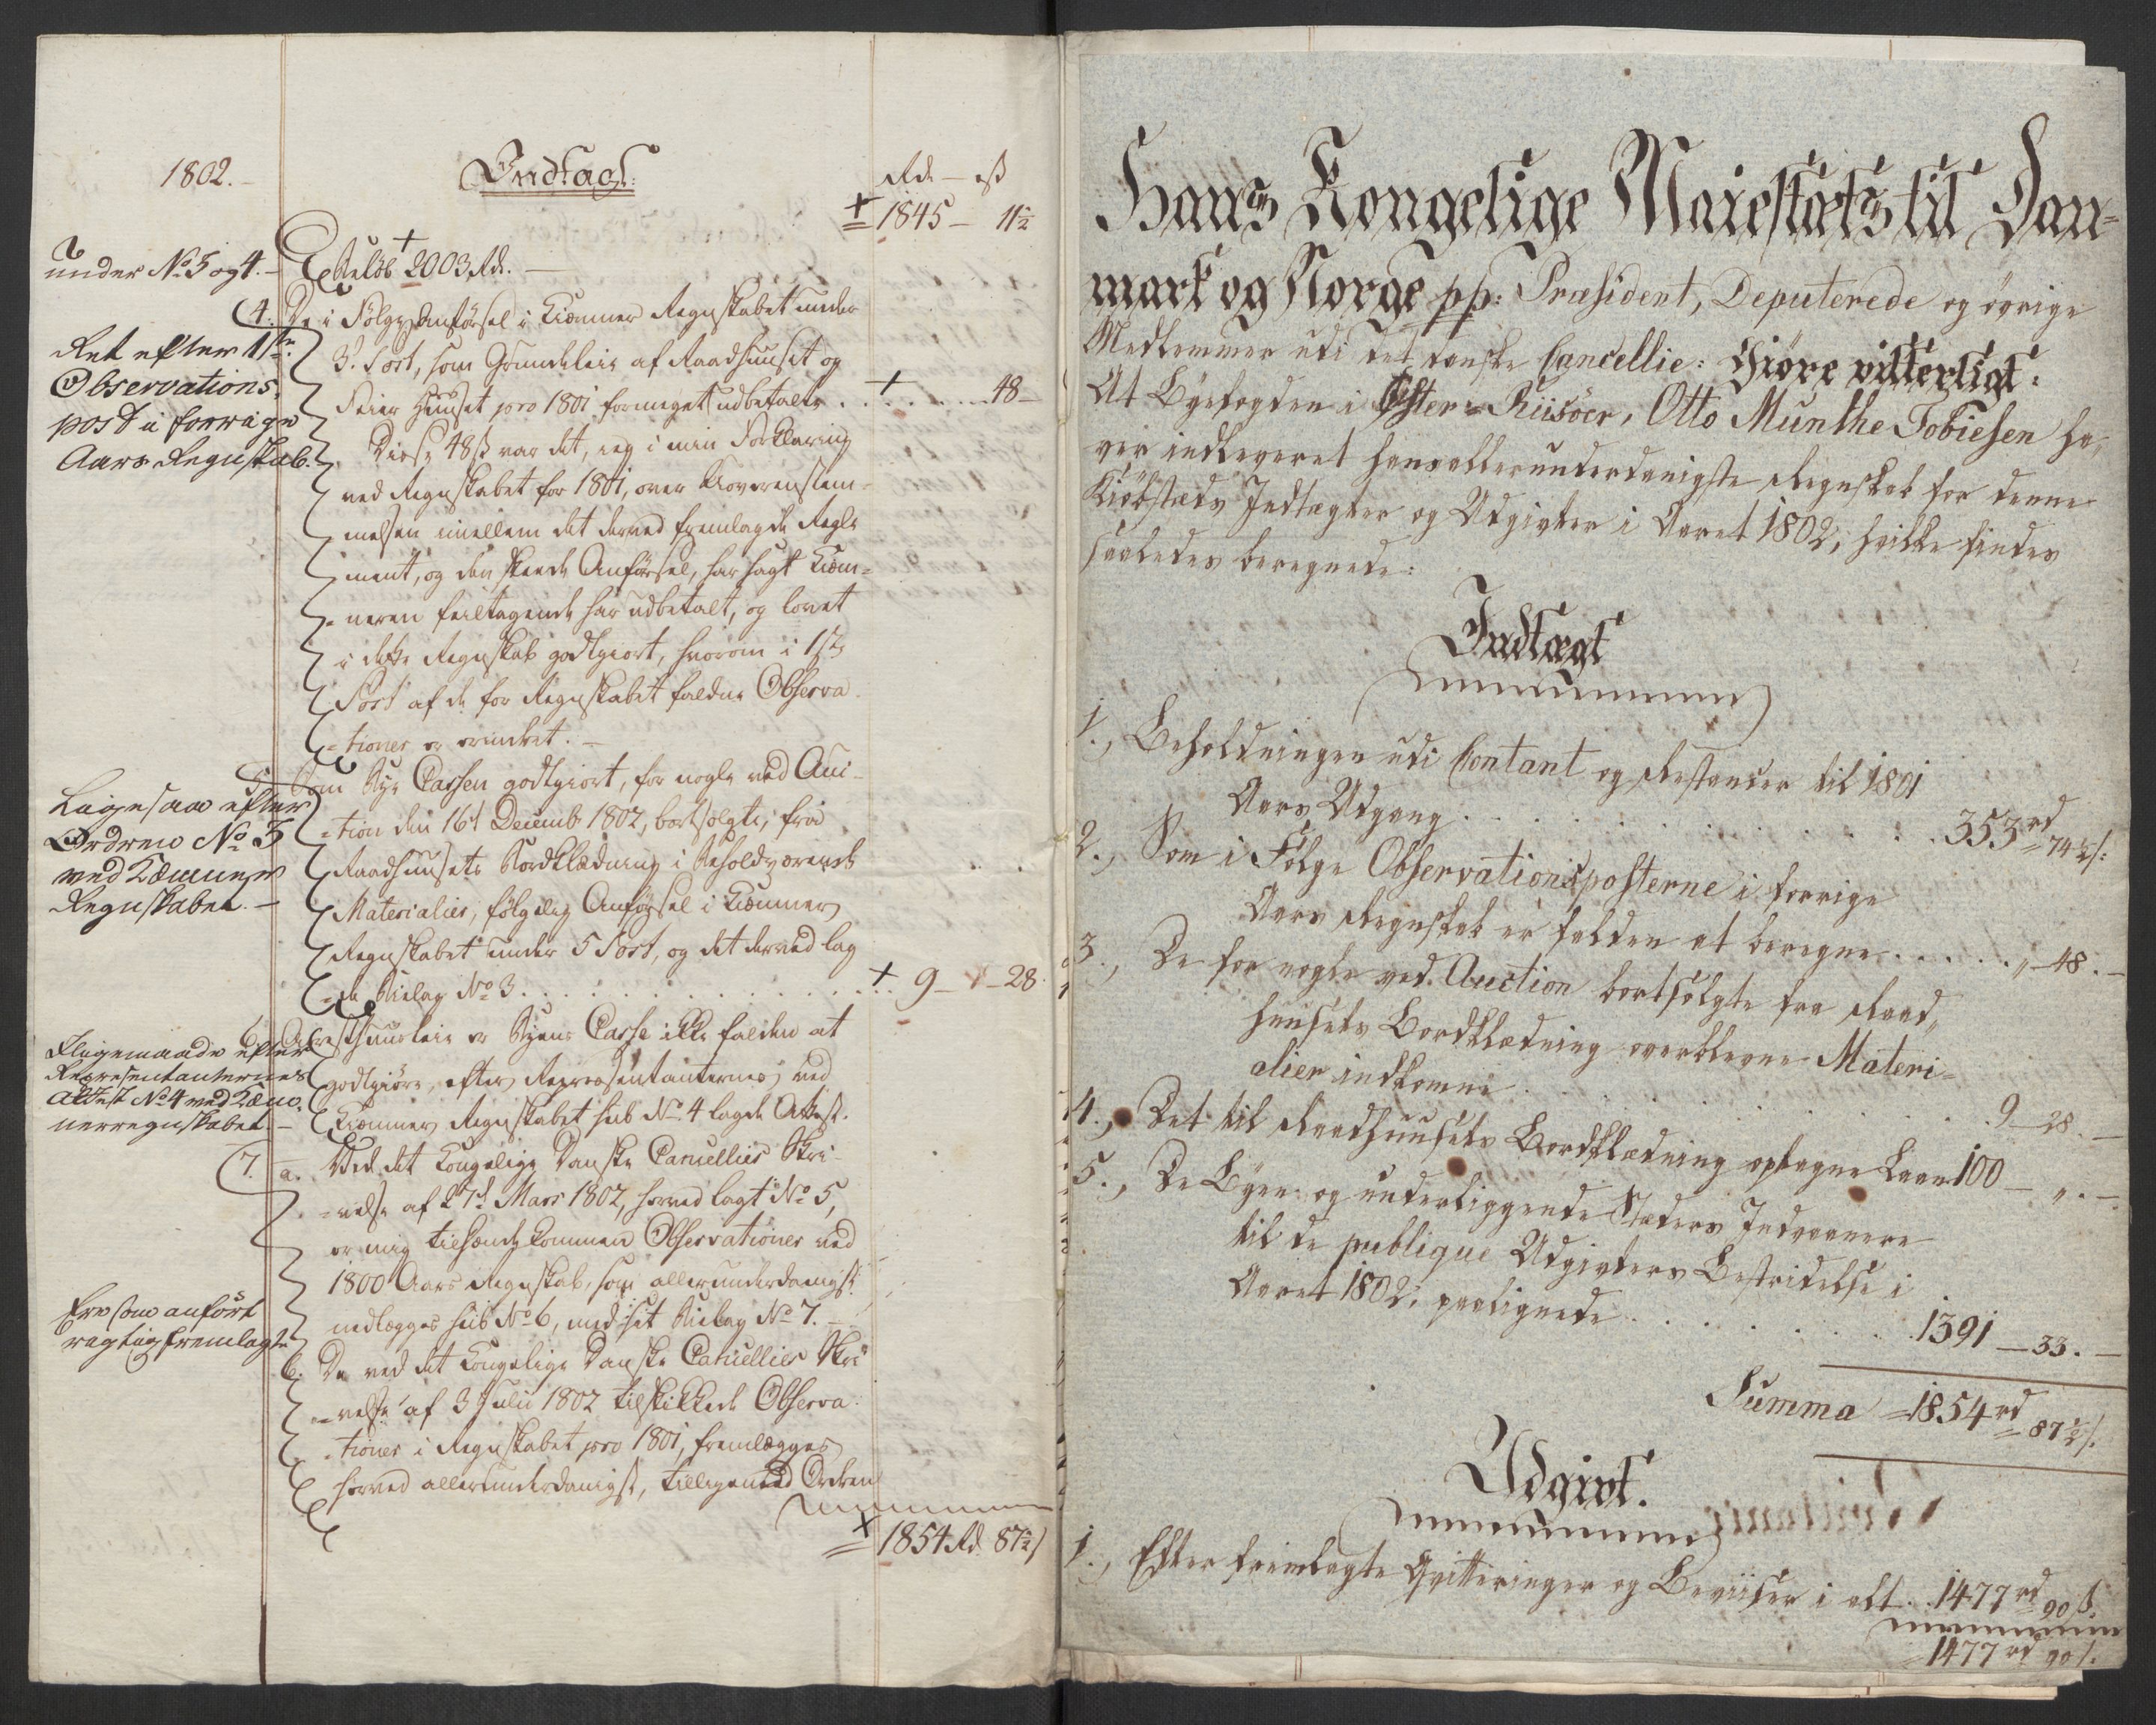 1802.
Indtægt:
Rd. – ß
1845 – 11½
under No 3 og 4. –
Beløb 2003 Rd. –
4. De i Følge Anførsel i Kiæmner Regnskabet under
3d. Post, som Grundeleie af Raadhuuset og
Sviin Huuset pro 1801 formeget udbetalte . . . . . 48 –
Ret efter 1ste
Observations
post i forrige
Aars Regnskab. –
Disse 48 ß var det, ieg i min Forklaring
ved Regnskabet for 1801, over Uoverenstem-
melsen imellem det derved fremlagde Regle
ment, og den skeede Anførsel, har sagt Kiæm-
neren feiltagende har udbetalt, og lovet
i dette Regnskab godtgiort, hvorom i 1ste
Post af de for Regnskabet faldne Observa
tioner er erindret. –
Ligesaa efter
Ordren No 3
ved Kæmner
Regnskabet. –
5. Som Bye Cassen godtgiort, for nogle ved Auc-
tion den 16d Decemb 1802, bortsolgte, fra
Raadhuusets Bordklædning i Behold værende
Materialier, følgelig Anførsel i Kiæmner
Regnskabet under 5 Post, og det derved lag
de Bielag No 3 . . . . . . . . . . 9 – 28.
Ligemaade efter
Representanternes
Attest No 4 ved Kæm-
nerregnskabet. –
6. Arresthuusleie er Byens Casse ikke falden at
godtgiøre, efter Representanternes, ved
Kiæmner Regnskabet sub No 4 lagde Attest.
7. a. Ved det Kongelige Danske Cancellies Skri-
velse af 27d Mars 1802, herved lagt No 5,
er mig tilhændekommen Observationer ved
1800 Aars Regnskab, som allerunderdanigst
nedlægges sub No 6, med sit Bielag No 7. –
Ere som anført
rigtig fremlagte
b. De ved det Kongelige Danske Cancellies Skri
velse af 3 Julii 1802 tilskikkede Observa-
tioner i Regnskabet pro 1801, fremlægges
herved allerunderdanigst, tilligemed Ordren
1854 Rd. 87½ ß
Hans Kongelige Maiestæts til Dan-
mark og Norge pp: Præsident, Deputerede og øvrige
Medlemmer udi det danske Cancellie: Giøre vitterligt:
At Byefogden i Øster-Riisöer, Otto Munthe Tobiesen ha-
ver indleveret hans allerunderdanigste Regnskab for denne
Kiöbstæds Indtægter og Udgivter i Aaret 1802, hvilke findes
saaledes beregnede:
Indtægt
1., Beholdningen udi Contant og Restancer til 1801
Aars Udgang . . . . . . . . 353 rd 74½ ß.
2., Som i Følge Observationsposterne i forrige
Aars Regnskab er falden at beregne . . . . . „ – 48. –
3., De for nogle ved Auction bortsolgte fra Raad-
huusets Bordklædning overblevne Materi-
alier indkomne . . . . . . . . 9 – 28. –
4., Det til Raadhuusets Bordklædning optagne Laan 100 – „. –
5., De Byen og underliggende Stæders Indvaanere
til de publique Udgivters Bestridelse i
Aaret 1802, paalignede . . . . . . . 1391 – 33. –
Summa = 1854 rd 87½ ß.
Udgivt.
1., Efter fremlagte Qvitteringer og Beviiser i alt . . 1477 rd 90 ß.
1477 rd 90 ß.